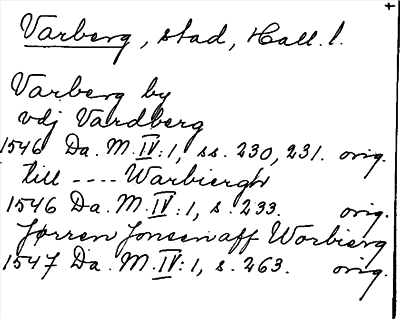 Varberg, stad, Hall. l.
Varberg by
vdj Vardberg
1546 Da. M. IV:1, ss. 230, 231. orig.
till ---- Warbiergh
1546 Da. M. IV:1, s. 233. orig.
Jørren Jonsen aff Worbierg
1547 Da. M. IV:1, s. 263. orig.